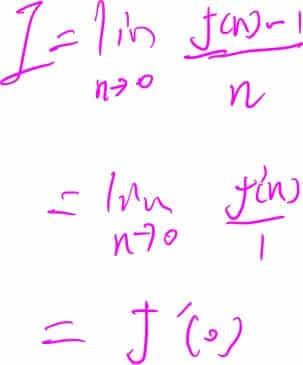 I = lim n→0 f(n)-1 / n
= lim n→0 f'(n) / 1
= f'(0)